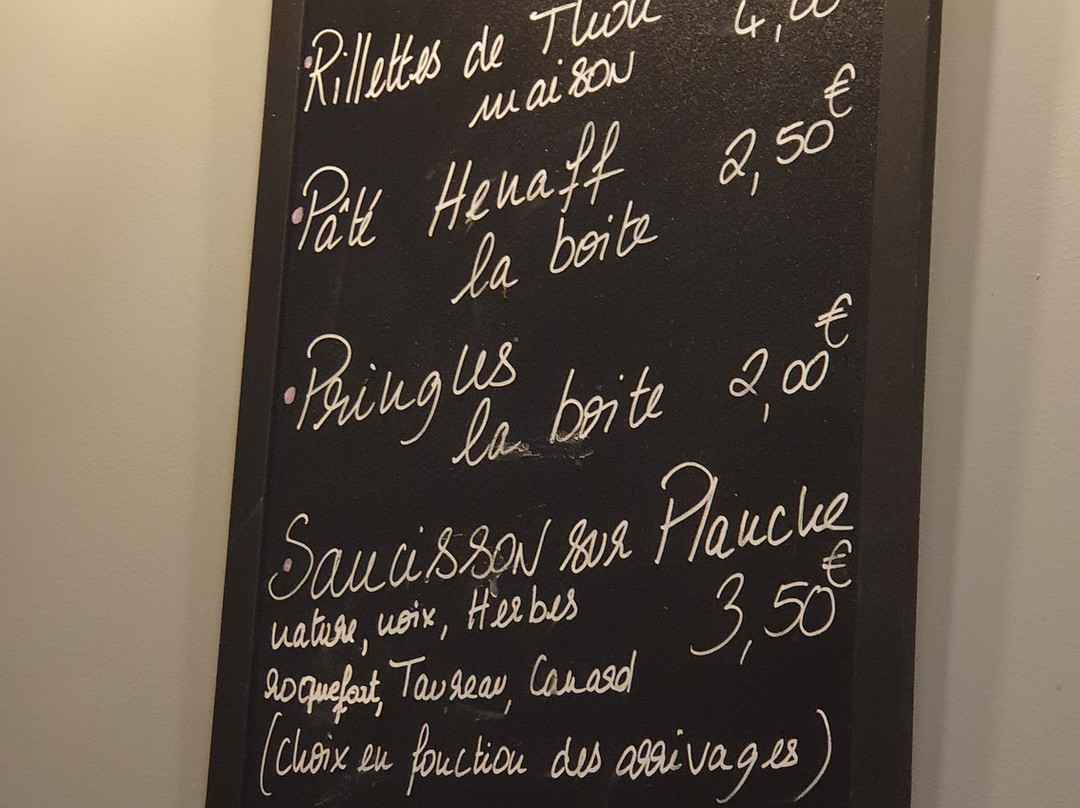 Rillettes de Thon 4,00
maison
Pâté Henaff 2,50€
la boite
Pringles
la boite 2,00€
Saucisson sur Planche
nature, noix, Herbes 3,50€
roquefort, Taureau, Canard
(Choix en fonction des arrivages)